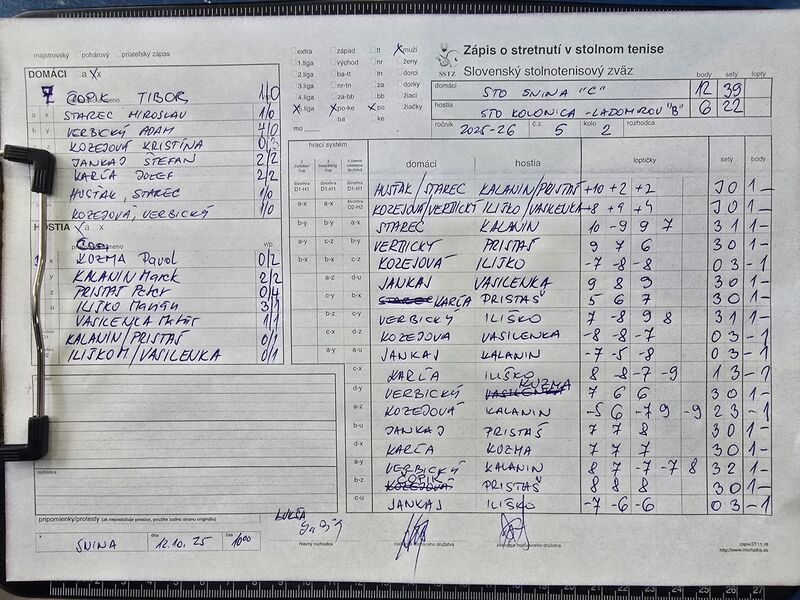 majstrovský pohárový priateľský zápas
extra západ tt muži
1.liga východ nr ženy
2.liga ba-tt tn dorci
3.liga nr-tn za dorky
4.liga za-bb bb žiaci
5.liga po-ke po žiačky
ba ke
mo
Zápis o stretnutí v stolnom tenise
SSTZ Slovenský stolnotenisový zväz
body sety lopty
domáci STO SNINA "C" 12 39
hostia STO KOLONICA - LADOMIROV "B" 6 22
ročník 2025-26 č.z. 5 kolo 2 rozhodca
DOMÁCI a x
ČOPIK TIBOR 1/0
a x STAREC MIROSLAV 1/0
b y VERBICKÝ ADAM 4/0
KOZEJOVÁ KRISTÍNA 0/3
JANKAJ ŠTEFAN 2/2
KARĽA JOZEF 2/2
HUSŤAK, STAREC 1/0
KOZEJOVÁ, VERBICKÝ 1/0
HOSTIA v/p
KOZMA Pavol 0/2
y KALANIN Marek 2/2
PRISTAŠ Peter 0/4
u ILIŠKO Marián 3/1
VASILENKA Matúš 1/1
KALANIN/PRISTAŠ 0/1
ILIŠKO M/VASILENKA 0/1
hrací systém domáci hostia loptičky sety body
D1-H1 HUSŤAK/STAREC KALANIN/PRISTAŠ +10 +2 +2 3 0 1 -
a-x KOZEJOVÁ/VERBICKÝ ILIŠKO/VASILENKA +8 +9 +4 3 0 1 -
b-y STAREC KALANIN 10 -9 9 7 3 1 1 -
VERBICKÝ PRISTAŠ 9 7 6 3 0 1 -
KOZEJOVÁ ILIŠKO -7 -8 -8 0 3 - 1
JANKAJ VASILENKA 9 8 9 3 0 1 -
KARĽA PRISTAŠ 5 6 7 3 0 1 -
VERBICKÝ ILIŠKO 7 -8 9 8 3 1 1 -
KOZEJOVA VASILENKA -8 -8 -7 0 3 - 1
a-y JANKAJ KALANIN -7 -5 -8 0 3 - 1
c-x KARĽA ILIŠKO 8 -8 -7 -9 1 3 - 1
d-y VERBICKÝ KOZMA 7 6 6 3 0 1 -
a-z KOZEJOVÁ KALANIN -5 6 -7 9 -9 2 3 - 1
b-u JANKAJ PRISTAŠ 7 7 8 3 0 1 -
d-x KARĽA KOZMA 7 7 7 3 0 1 -
a-y VERBICKÝ KALANIN 8 7 -7 -7 8 3 2 1 -
b-z ČOPIK PRISTAŠ 8 8 8 3 0 1 -
c-u JANKAJ ILIŠKO -7 -6 -6 0 3 - 1
rozhodca
pripomienky/protesty (ak nepostačuje priestor, použite zadnú stranu originálu)
v SNINA dňa 12.10.25 čas 1000
hlavný rozhodca
zápisST11.rtf
http://www.michalka.sk